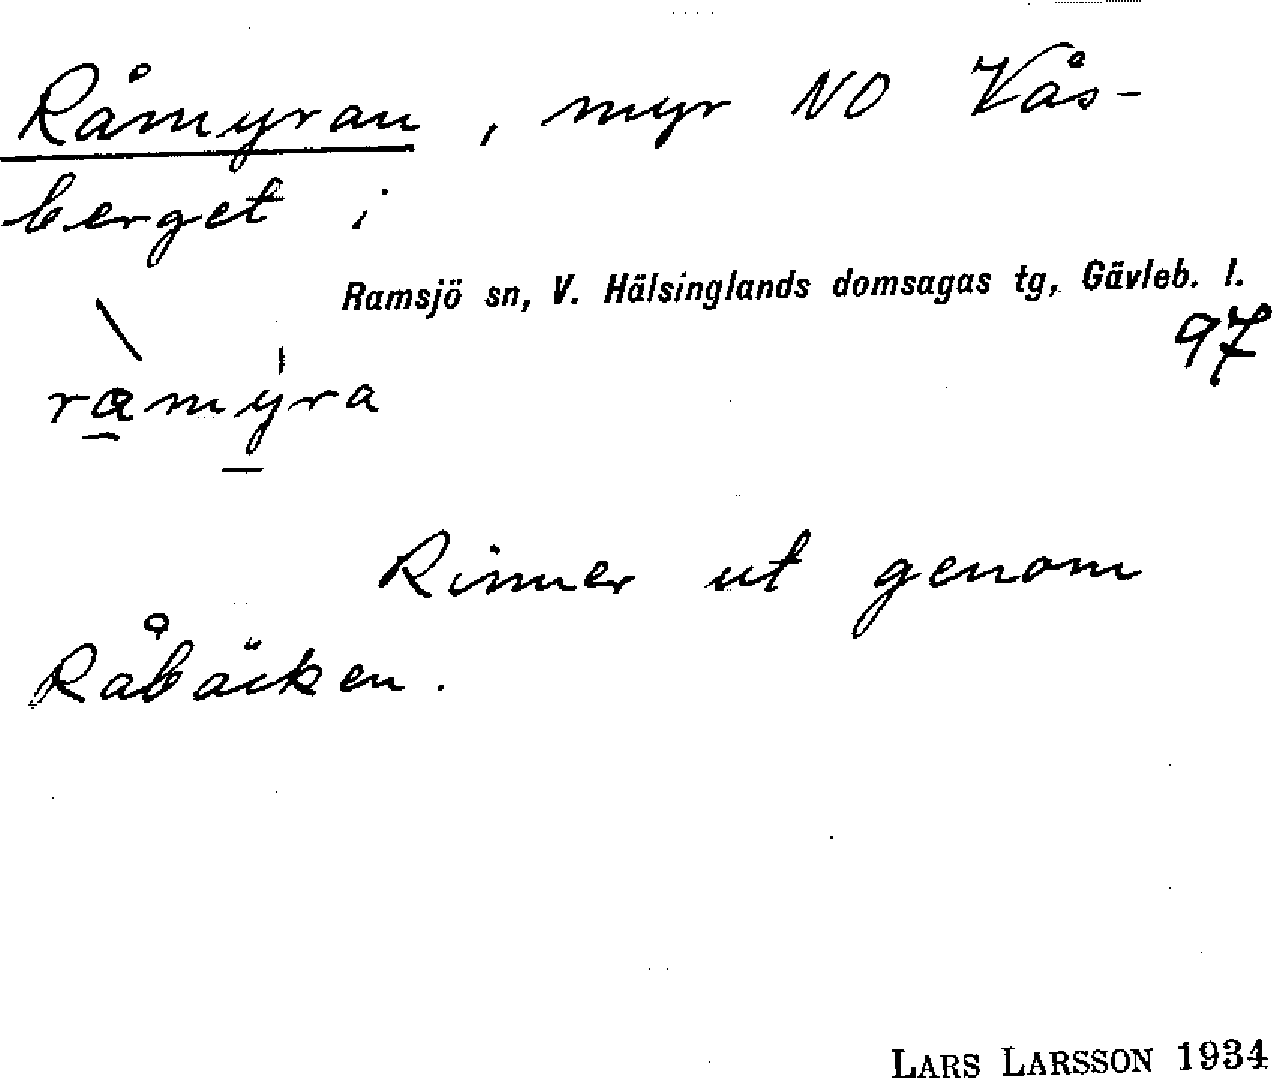 Råmyran, myr NO Vås-
berget i
Ramsjö sn, V. Hälsinglands domsagas tg, Gävleb. l.
97
ràmy̍ra
Rinner ut genom
Råbäcken.
LARS LARSSON 1934